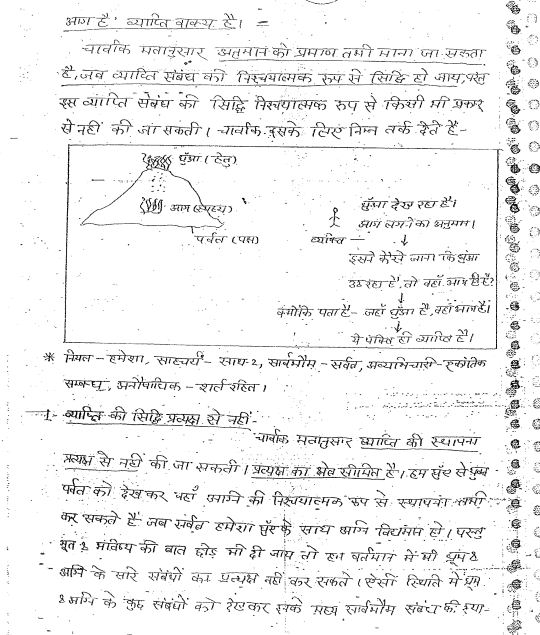 आग है' व्याप्ति वाक्य है। =
चार्वाक मतानुसार अनुमान को प्रमाण तभी माना जा सकता
है, जब व्याप्ति संबंध को निश्चयात्मक रूप से सिद्धि हो जाय, परंतु
इस व्याप्ति संबंध की सिद्धि निश्चयात्मक रूप से किसी भी प्रकार
से नहीं की जा सकती। चार्वाक इसके लिए निम्न तर्क देते हैं-
धुँआ (हेतु)
आग (साध्य)
पर्वत (पक्ष)
व्यक्ति —
धुँआ देख रहा है।
आग लगने का अनुमान।
↓
इसने कैसे जाना कि धुंआ
उठ रहा है, तो वहाँ आग ही है?
↓
क्योंकि पता है - जहाँ धुँआ है, वहाँ आग है।
↓
ये पंक्ति ही व्याप्ति है।
* नियत - हमेशा, साहचर्य - साथ-2, सार्वभौम - सर्वत्र, अव्यभिचारी - एकांतिक
सम्बन्ध, अनौपाधिक - शर्त रहित।
1- व्याप्ति की सिद्धि प्रत्यक्ष से नहीं -
चार्वाक मतानुसार व्याप्ति की स्थापना
प्रत्यक्ष से नहीं की जा सकती। प्रत्यक्ष का क्षेत्र सीमित है। हम धुंए से युक्त
पर्वत को देखकर वहाँ अग्नि की निश्चयात्मक रूप से स्थापना तभी
कर सकते हैं जब सर्वत्र हमेशा धुंए के साथ अग्नि विद्यमान हो। परन्तु
भूत व भविष्य की बात छोड़ भी दी जाय तो हम वर्तमान में भी धूम व
अग्नि के सारे संबंधों का प्रत्यक्ष नहीं कर सकते। ऐसी स्थिति में धूम
व अग्नि के कुछ संबंधों को देखकर उनके मध्य सार्वभौम संबंध की स्था-